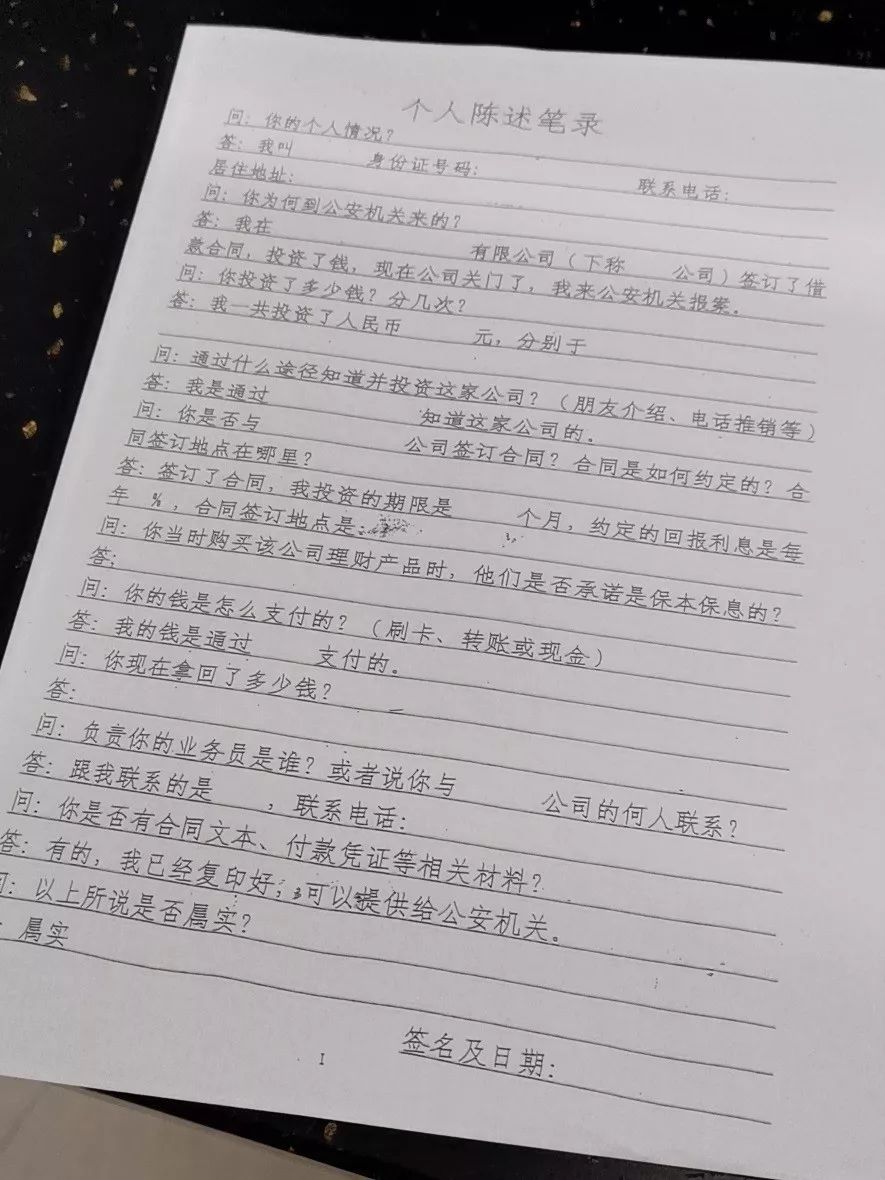 个人陈述笔录
问：你的个人情况？
答：我叫 身份证号码： 联系电话：
居住地址：
问：你为何到公安机关来的？
答：我在 有限公司（下称 公司）签订了借
款合同，投资了钱，现在公司关门了，我来公安机关报案。
问：你投资了多少钱？分几次？
答：我一共投资了人民币 元，分别于
问：通过什么途径知道并投资这家公司？（朋友介绍、电话推销等）
答：我是通过 知道这家公司的。
问：你是否与 公司签订合同？合同是如何约定的？合
同签订地点在哪里？
答：签订了合同，我投资的期限是 个月，约定的回报利息是每
年 %，合同签订地点是：
问：你当时购买该公司理财产品时，他们是否承诺是保本保息的？
答：
问：你的钱是怎么支付的？（刷卡、转账或现金）
答：我的钱是通过 支付的。
问：你现在拿回了多少钱？
答：
问：负责你的业务员是谁？或者说你与 公司的何人联系？
答：跟我联系的是 ，联系电话：
问：你是否有合同文本、付款凭证等相关材料？
答：有的，我已经复印好，可以提供给公安机关。
问：以上所说是否属实？
：属实
签名及日期：
1